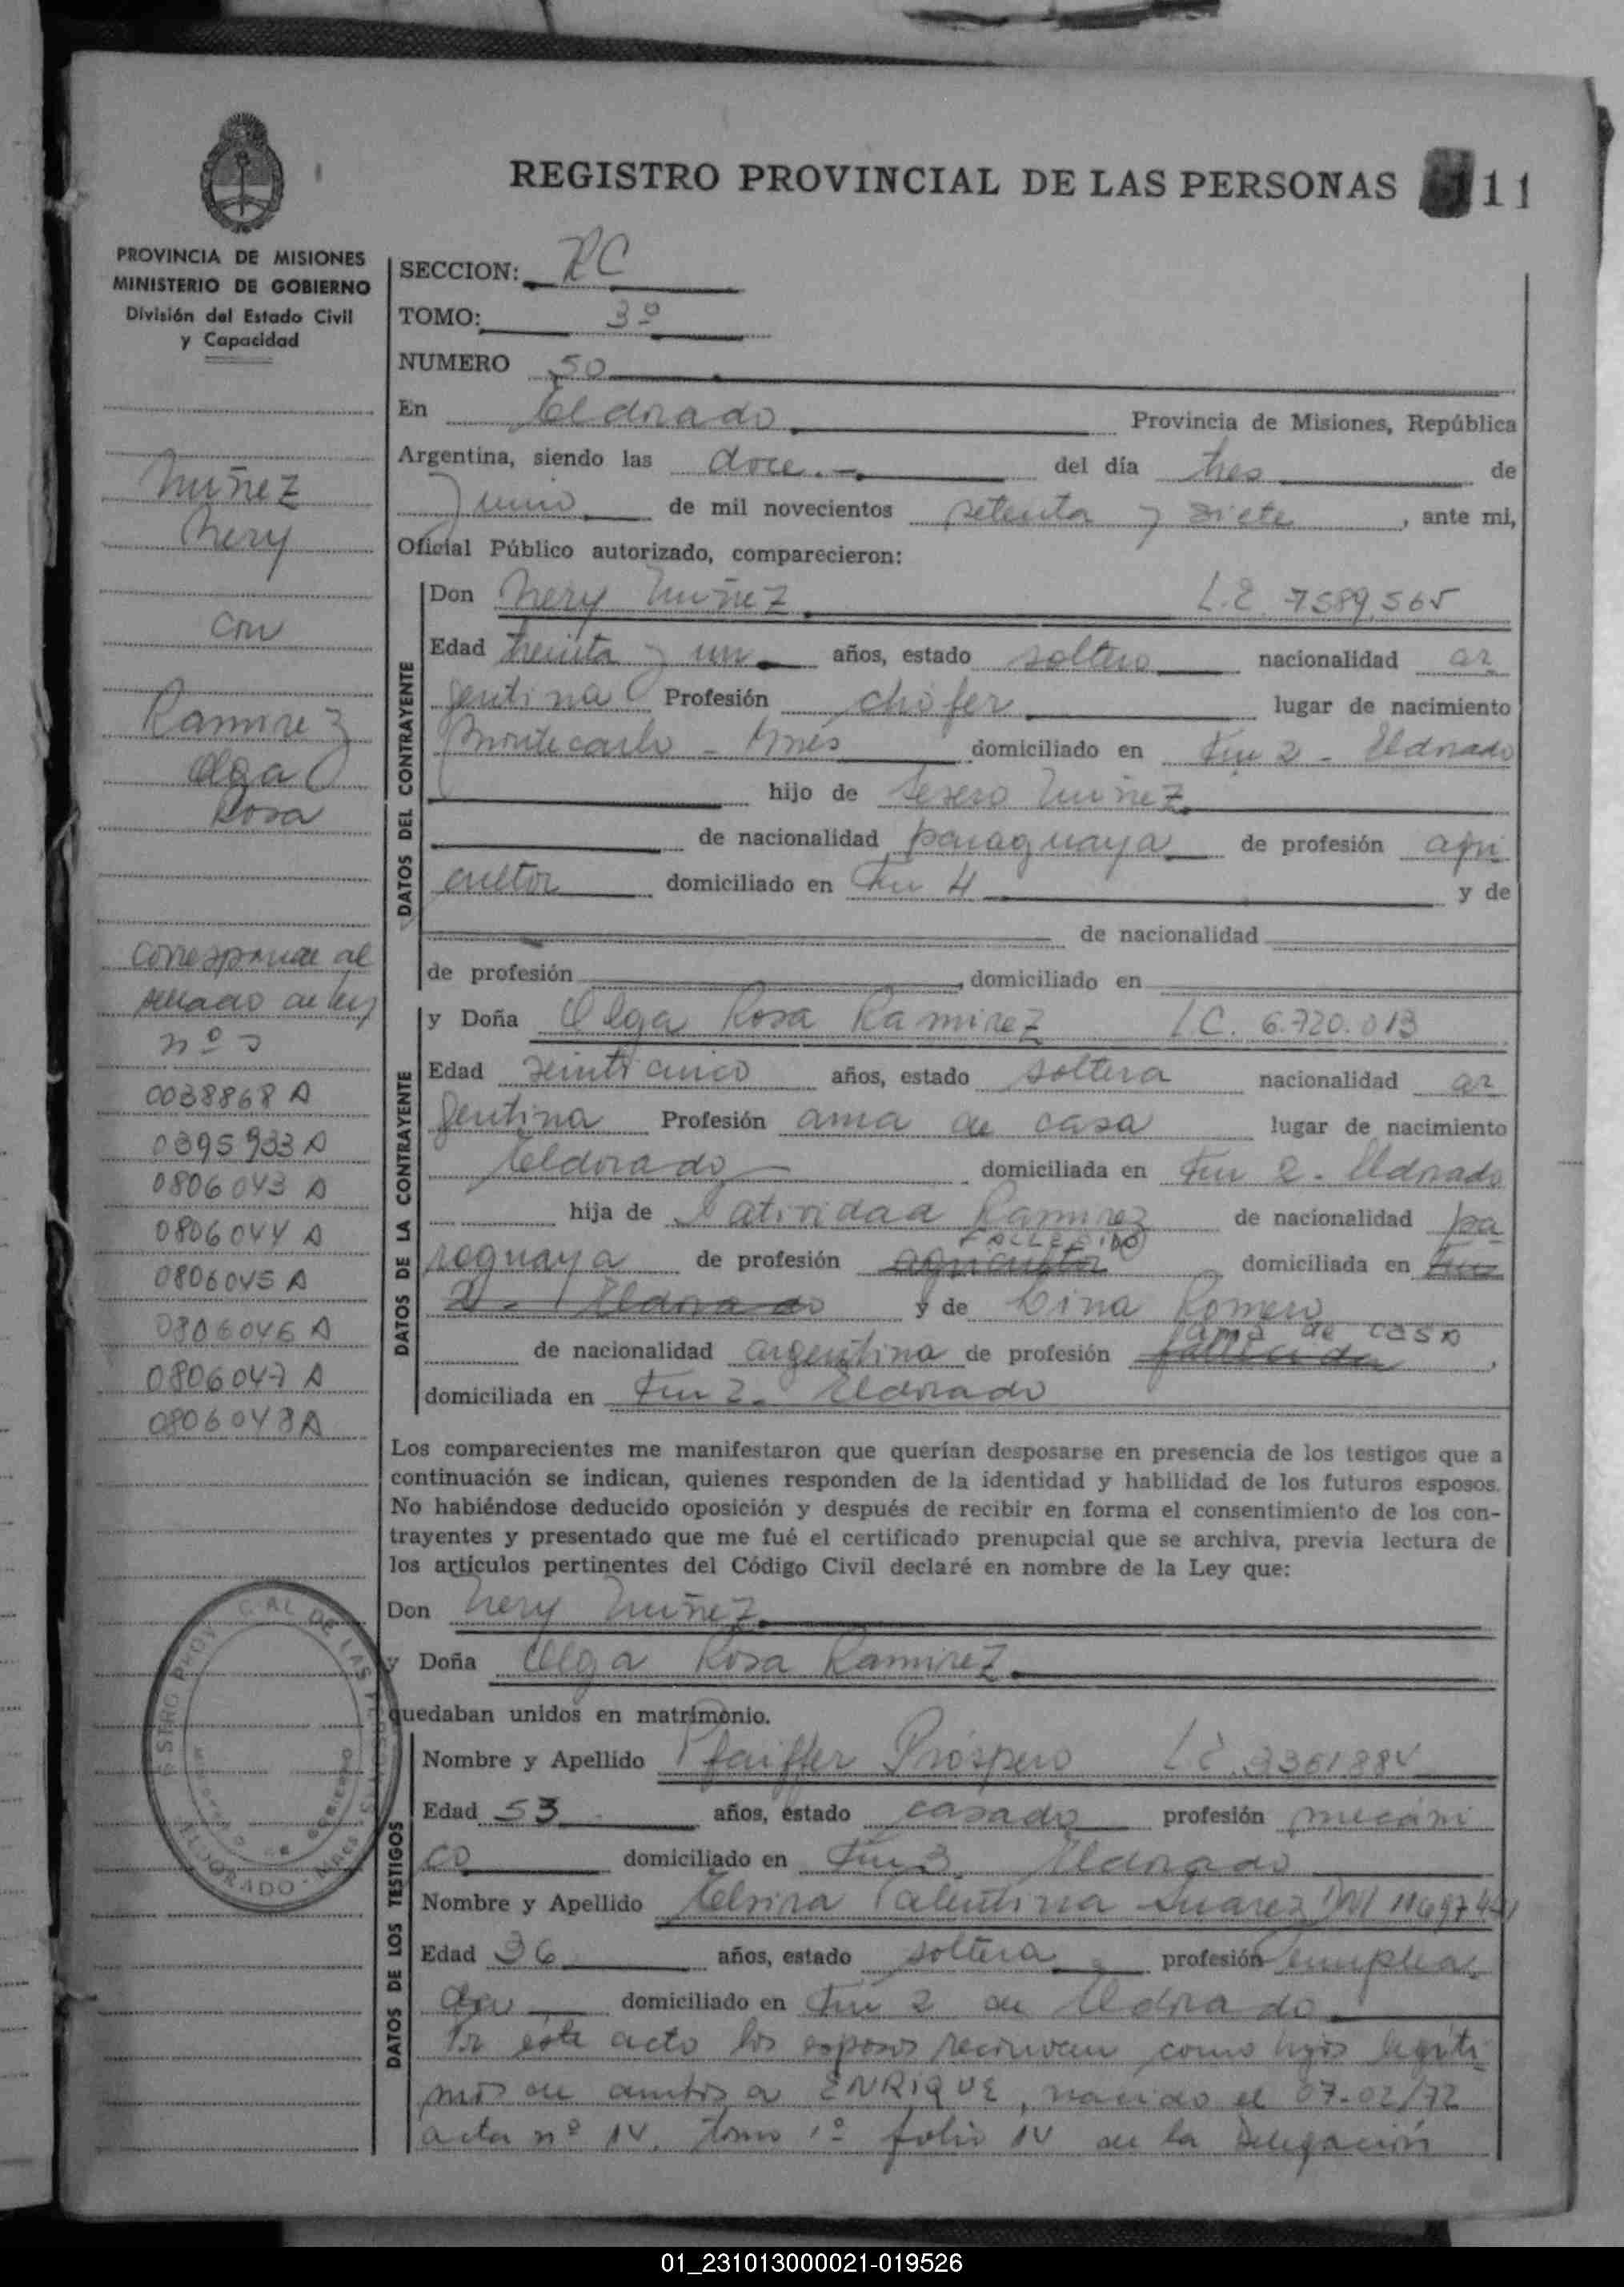 REGISTRO PROVINCIAL DE LAS PERSONAS 11
PROVINCIA DE MISIONES
MINISTERIO DE GOBIERNO
División del Estado Civil
y Capacidad
Nuñez
Nery
con
Ramirez
Olga
Rosa
Corresponde al
sellado de ley
nº s
0038868 A
0395933 A
0806043 A
0806044 A
0806045 A
0806046 A
0806047 A
0806048 A
SECCION: RC
TOMO: 3º
NUMERO 50
En Eldorado Provincia de Misiones, República
Argentina, siendo las doce.- del día tres de
Junio de mil novecientos setenta y siete, ante mi,
Oficial Público autorizado, comparecieron:
DATOS DEL CONTRAYENTE
Don Nery Nuñez L.E. 7589,565
Edad treinta y un años, estado soltero nacionalidad ar
gentina Profesión chófer lugar de nacimiento
Montecarlo - Mnes domiciliado en Km 2 - Eldorado
hijo de Nuñez
de nacionalidad paraguaya de profesión agri
cultor domiciliado en Km 4 y de
de nacionalidad
de profesión , domiciliado en
DATOS DE LA CONTRAYENTE
y Doña Olga Rosa Ramirez L.C. 6.720.013
Edad veinticinco años, estado soltera nacionalidad ar
gentina Profesión ama de casa lugar de nacimiento
Eldorado domiciliada en Km 2. Eldorado
hija de Natividad Ramirez de nacionalidad pa
FALLECIDO
raguaya de profesión agricultor domiciliada en Km
2. Eldorado y de Cina Romero
ama de casa
de nacionalidad argentina de profesión fallecida,
domiciliada en Km 2. Eldorado
Los comparecientes me manifestaron que querían desposarse en presencia de los testigos que a
continuación se indican, quienes responden de la identidad y habilidad de los futuros esposos.
No habiéndose deducido oposición y después de recibir en forma el consentimiento de los con-
trayentes y presentado que me fué el certificado prenupcial que se archiva, previa lectura de
los artículos pertinentes del Código Civil declaré en nombre de la Ley que:
Don Nery Nuñez
y Doña Olga Rosa Ramirez
quedaban unidos en matrimonio.
DATOS DE LOS TESTIGOS
Nombre y Apellido Pfeiffer Próspero L.E. 3361884
Edad 53 años, estado casado profesión mecáni
co domiciliado en Km 3 Eldorado
Nombre y Apellido Valentina Suarez DNI
Edad 36 años, estado soltera profesión emplea
da domiciliado en Km 2 de Eldorado
En éste acto los esposos reconocen como hijos legíti
mos de ambos a ENRIQUE, nacido el 07-02/72
acta nº 14. tomo 1º folio 14 de la Delegación
01_231013000021-019526